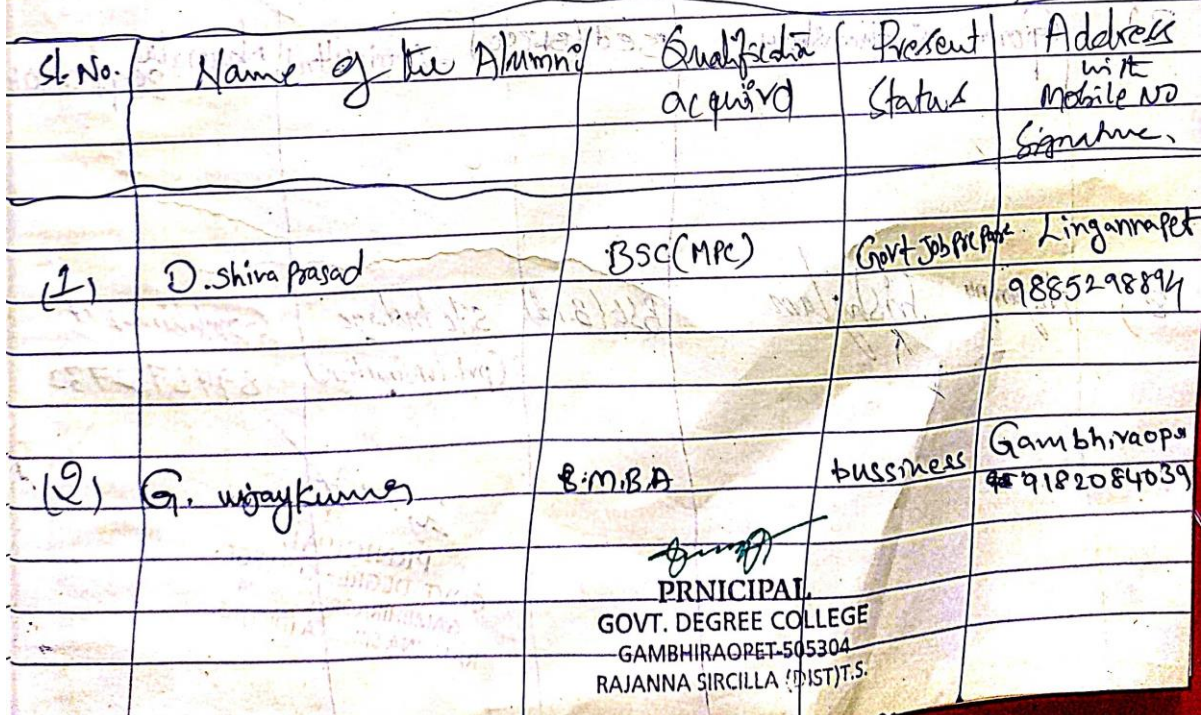 Sl. No. Name of the Alumni Qualification Present Address
acquired Status with
Mobile NO
Signature.
(1) D. shiva prasad BSC (MPC) Govt Job prepare. Lingannapet
9885298894
(2) G. vijaykumar M.B.A bussiness Gambhiraope
9182084039
PRNICIPAL
GOVT. DEGREE COLLEGE
GAMBHIRAOPET-505304
RAJANNA SIRCILLA (DIST)T.S.